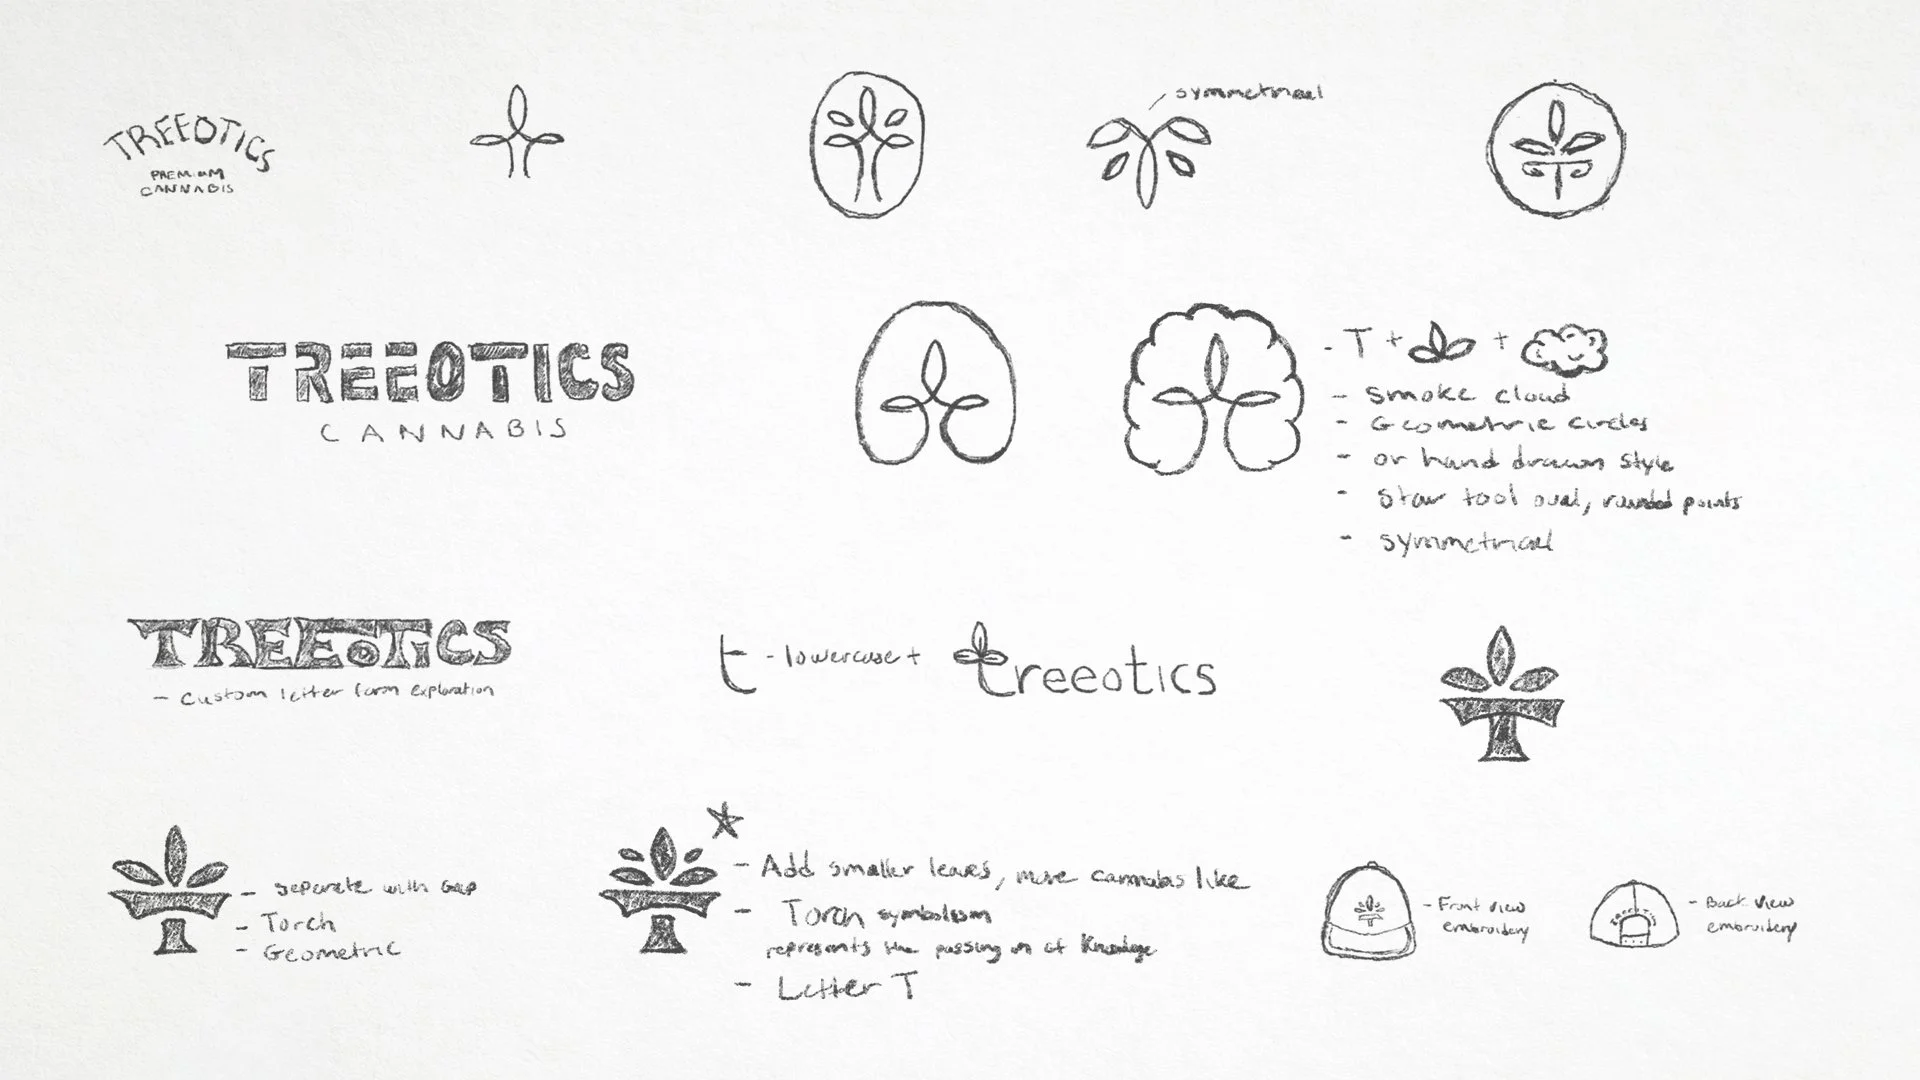 TREEOTICS
PREMIUM
CANNABIS
symmetrical
TREEOTICS
CANNABIS
- T + +
- smoke cloud
- Geometric circles
- or hand drawn style
- Star tool oval, rounded points
- symmetrical
TREEOTICS
- Custom letter form exploration
t - lowercase t
treeotics
- seperate with Gap
- Torch
- Geometric
- Add smaller leaves, more cannabis like
- Torch symbolism
represents the passing on of Knowledge
- Letter T
- Front view
embroidery
TREEOTICS
- Back view
embroidery